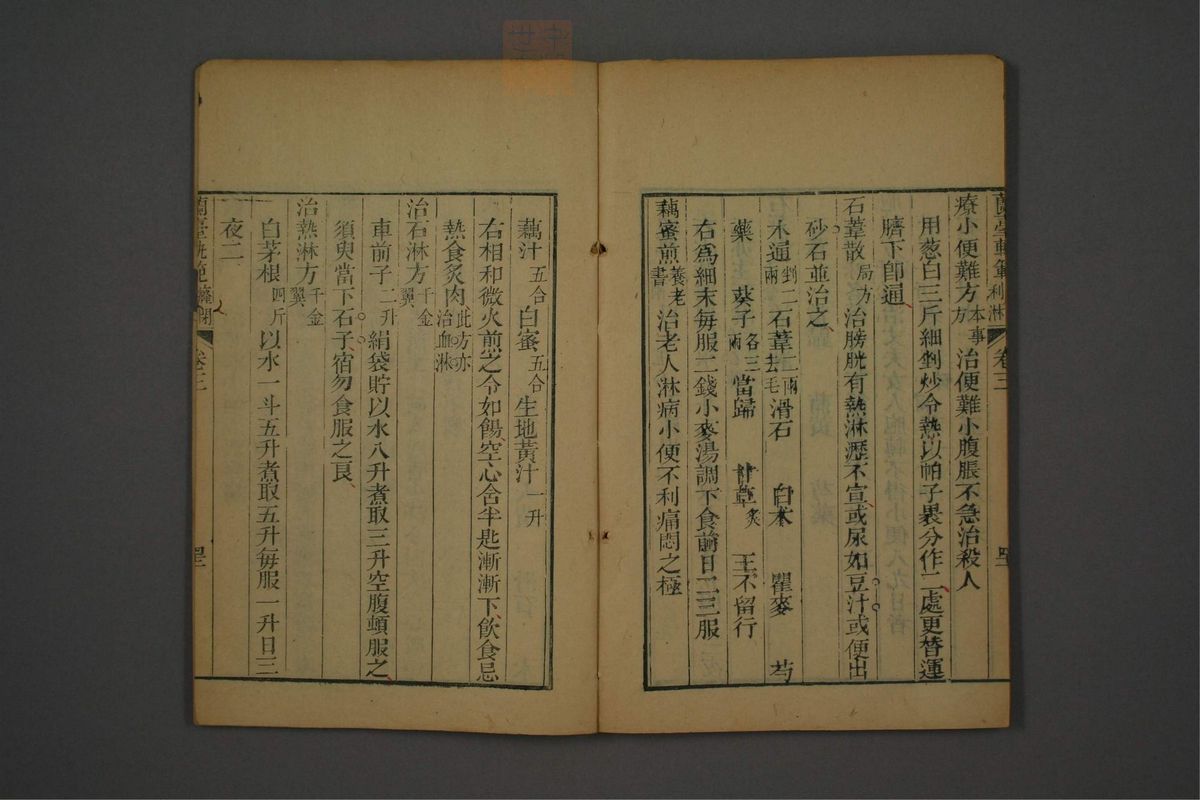 蘭臺軌範 利淋 卷三
療小便難方本事方 治便難小腹脹不急治殺人
用葱白三斤細剉炒令熱以帕子裹分作二處更替運
臍下卽通
石葦散局方 治膀胱有熱淋瀝不宣或尿如豆汁或便出
砂石並治之
木通剉二兩 石葦二兩去毛 滑石 白术 瞿麥 芍
藥 葵子各三兩 當歸 甘草炙 王不留行
右爲細末每服二錢小麥湯調下食前日二三服
藕蜜煎養老書 治老人淋病小便不利痛悶之極
藕汁五合 白蜜五合 生地黃汁一升
右相和微火煎之令如餳空心含半匙漸漸下飲食忌
熱食炙肉此方亦治血淋
治石淋方千金翼
車前子二升 絹袋貯以水八升煮取三升空腹頓服之
須臾當下石子宿勿食服之良
治熱淋方千金翼
白茅根四斤 以水一斗五升煮取五升每服一升日三
夜二
蘭臺軌範 癃閉 卷三